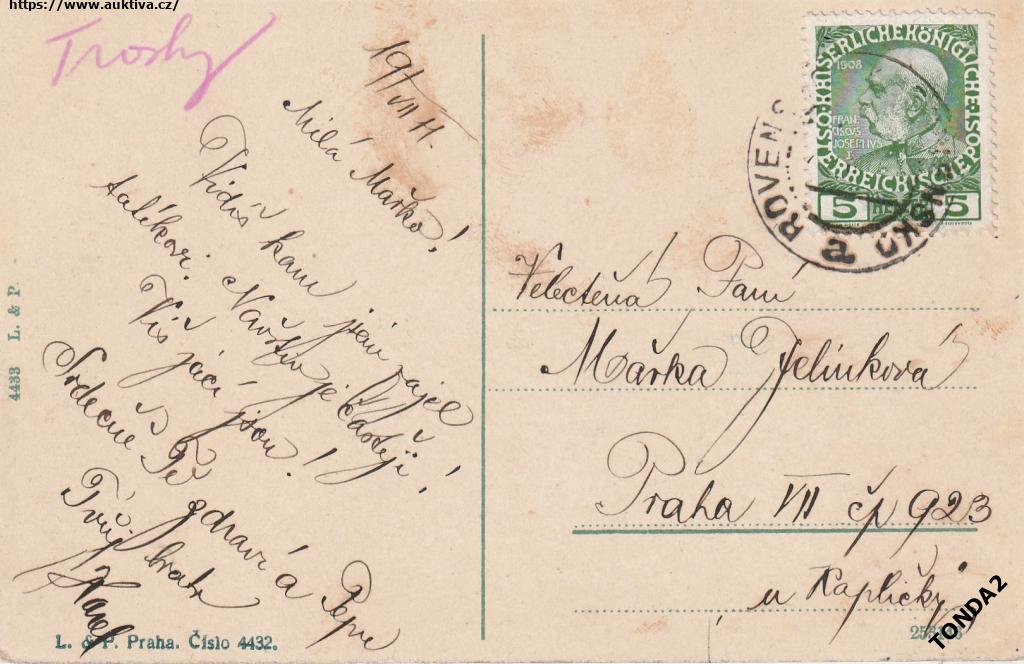 https://www.auktiva.cz/
Trosky
19/VII 11.
Milá Mařko!
Vidíš kam jsem zajel
tatíkovi. Navštiv je častěji!
Víš jácí jsou!
Srdečně Tě zdraví a
Tvůj bratr Pepu
Karel
4433 L. & P.
L. & P. Praha. Číslo 4432.
KAISERLICHE KÖNIGLICHE ÖSTERREICHISCHE POST
1908
FRANCISCUS JOSEPHVS I.
5 HELLER 5
ROVENSKO
Velectěná Paní
Mařka Jelínková
Praha VII čp 923
u Kapličky
TONDA2